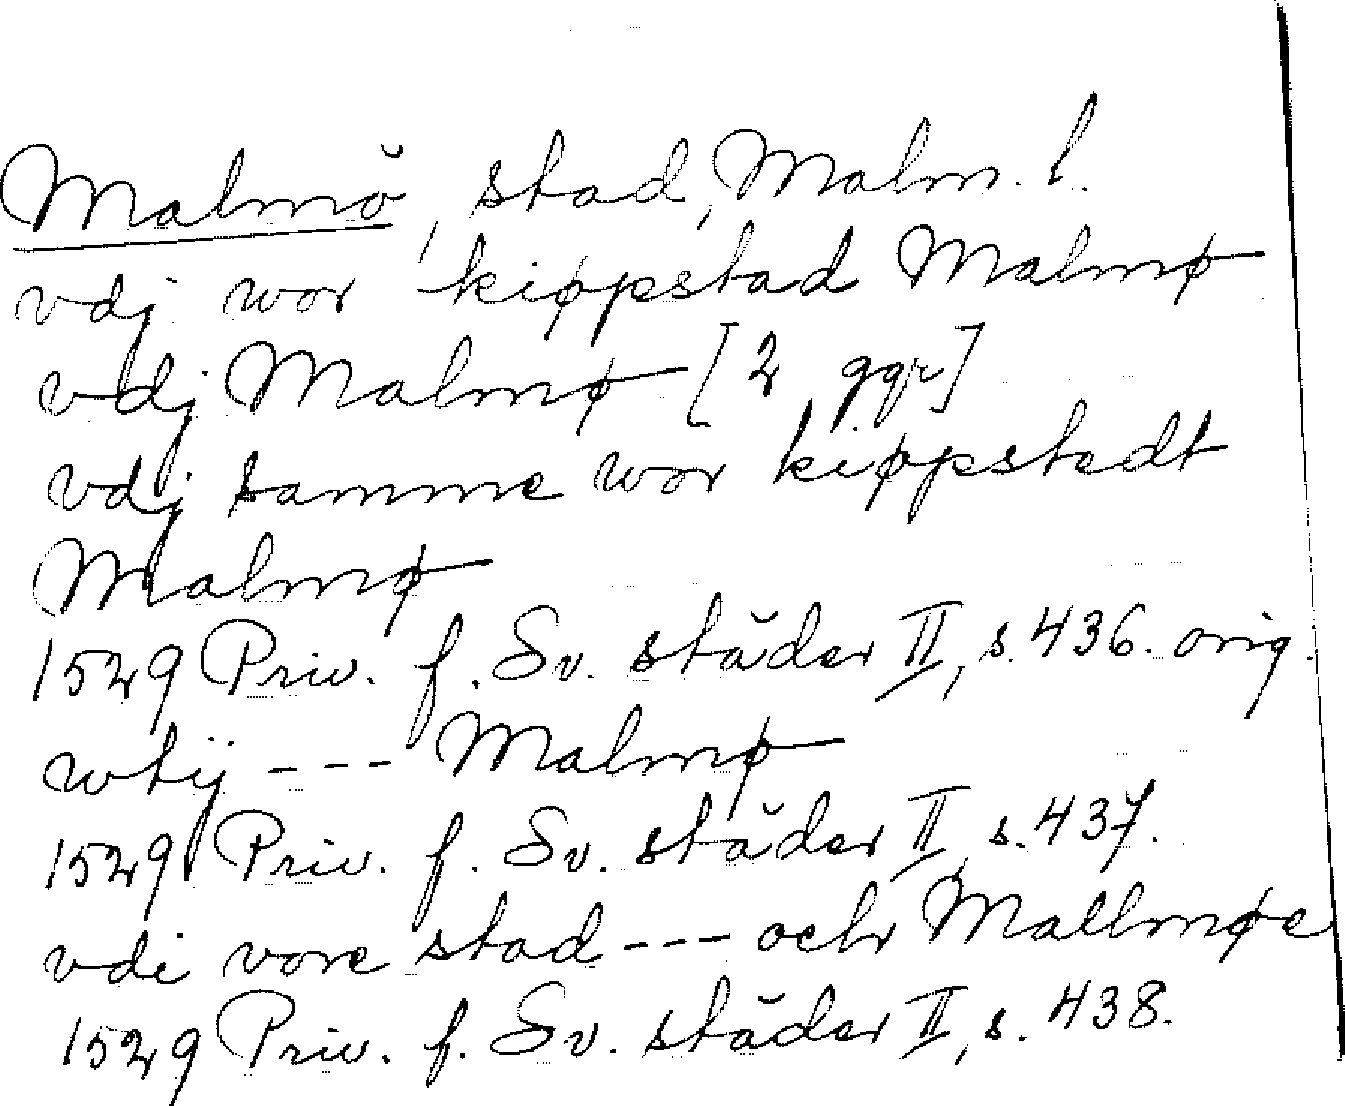 Malmö, stad, Malm. l.
vdj wor kiøpstad Malmø
vdj Malmø [2 ggr]
vdj samme wor kiøpstedt
Malmø
1529 Priv. f. Sv. städer II, s. 436. orig.
wtij --- Malmø
1529 Priv. f. Sv. städer II, s. 437.
vdi vore stad --- ochr Mallmøe
1529 Priv. f. Sv. städer II, s. 438.